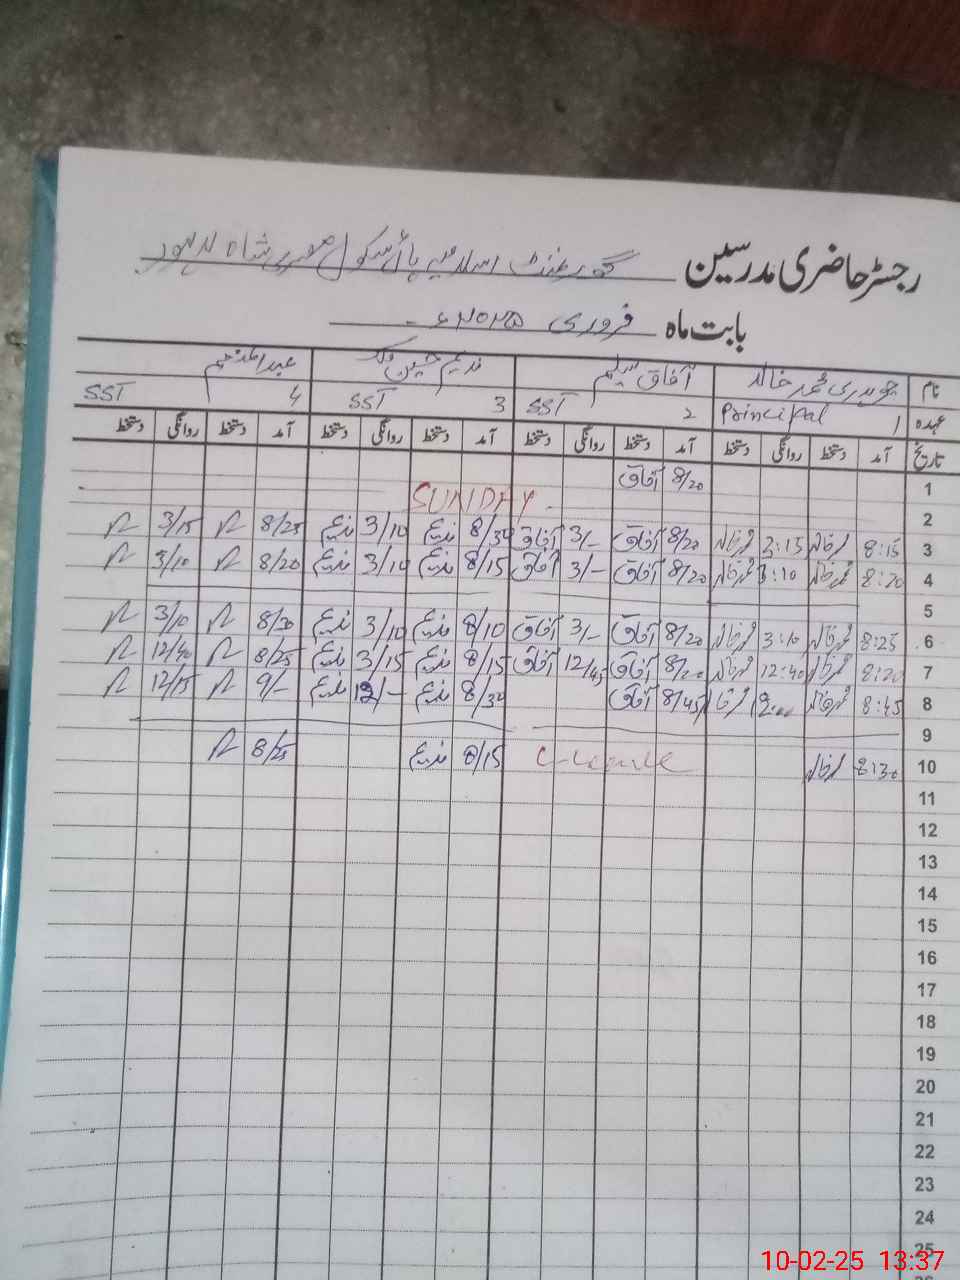 رجسٹر حاضری مدرسین گورنمنٹ اسلامیہ ہائی سکول مصری شاہ لاہور
بابت ماہ فروری ۲۰۲۵ء
نام چوہدری محمد خالد آفاق سلیم ندیم حسین
عہدہ 1 Principal ۲ SST 3 SST 4 SST
تاریخ آمد دستخط روانگی دستخط آمد دستخط روانگی دستخط آمد دستخط روانگی دستخط آمد دستخط روانگی دستخط
1 8/20 آفاق
2 SUNDAY
3 8:15 3:15 8/20 آفاق 3/- آفاق 8/30 ندیم 3/10 ندیم 8/25 3/15
4 8:20 3:10 8/20 آفاق 3/- آفاق 8/15 ندیم 3/10 ندیم 8/20 3/10
5
6 8:25 3:10 8/20 آفاق 3/- آفاق 8/10 ندیم 3/10 ندیم 8/30 3/10
7 8:20 12:40 8/20 آفاق 12/45 آفاق 8/15 ندیم 3/15 ندیم 8/25 12/40
8 8:45 8/45 آفاق 8/30 ندیم 12/- ندیم 9/- 12/15
9
10 8:30 C-Leave 8/15 ندیم 8/25
11
12
13
14
15
16
17
18
19
20
21
22
23
24
25
10-02-25 13:37